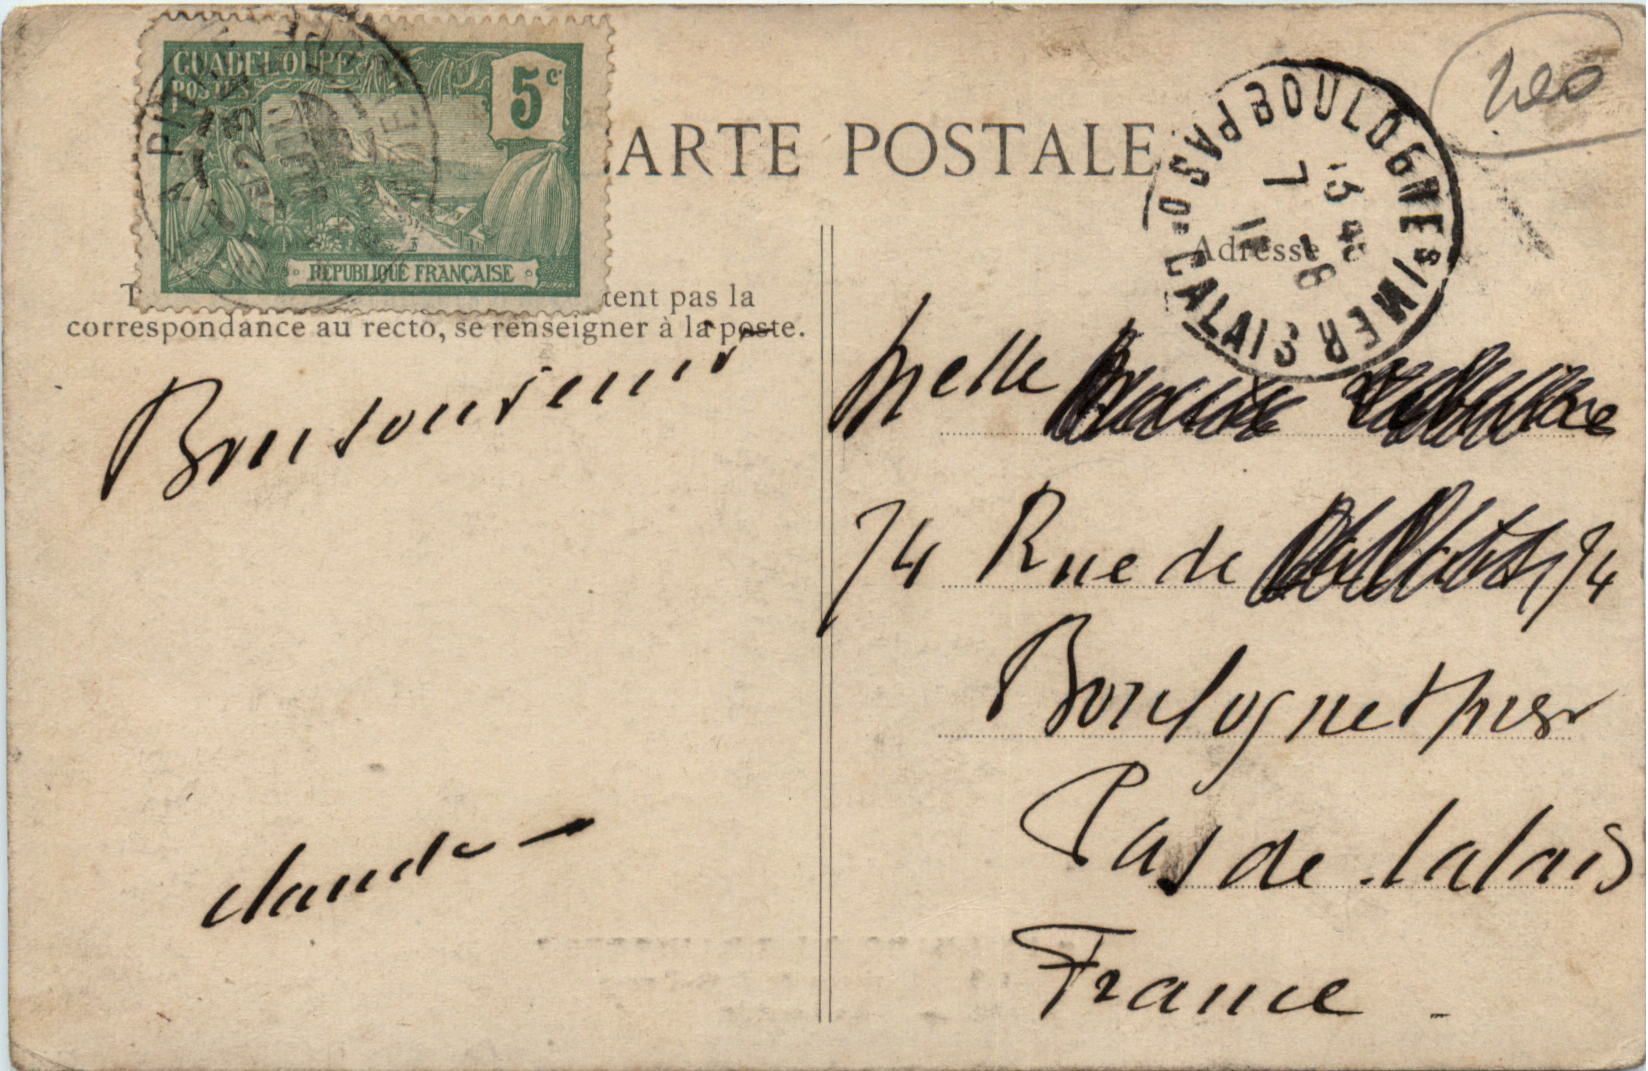 GUADELOUPE
POSTES
5 c.
REPUBLIQUE FRANÇAISE
CARTE POSTALE
BOULOGNE S/MER
PAS-D-CALAIS
7 -8
200
Adresse
T tent pas la
correspondance au recto, se renseigner à la poste.
Bon souvenir
Claude
Melle
74 Rue de 74
Boulogne s/mer
Pas de Calais
France